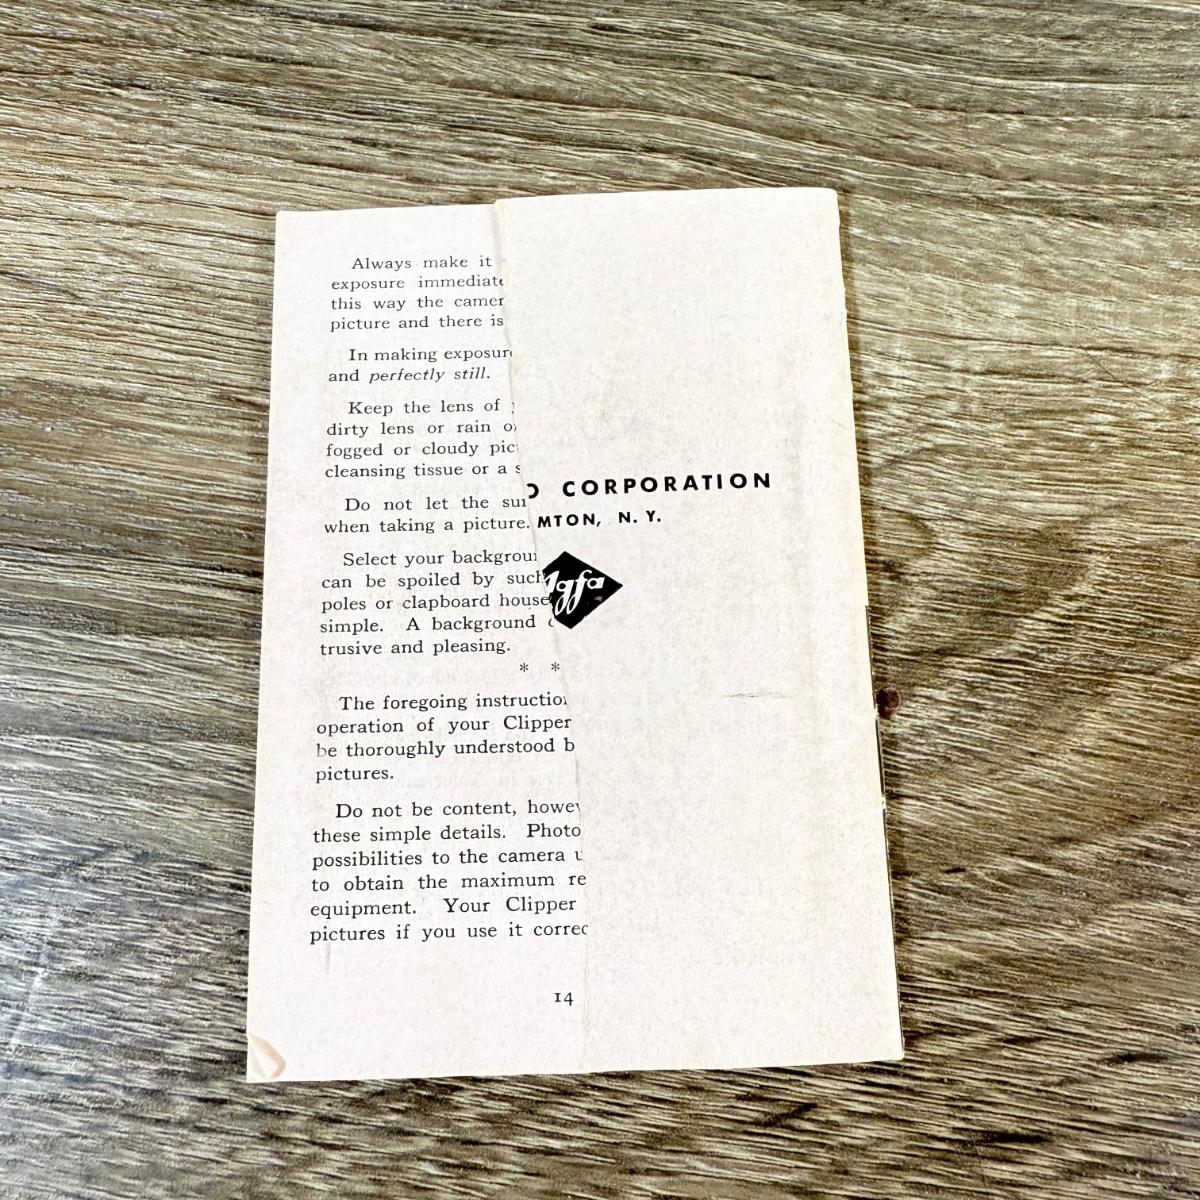 Always make it
exposure immediate
this way the camer
picture and there is
In making exposur
and perfectly still.
Keep the lens of
dirty lens or rain o
fogged or cloudy pic
cleansing tissue or a s
Do not let the sun
when taking a picture.
Select your backgroun
can be spoiled by such
poles or clapboard house
simple. A background
trusive and pleasing.
* *
The foregoing instruction
operation of your Clipper
be thoroughly understood b
pictures.
Do not be content, howev
these simple details. Photo
possibilities to the camera u
to obtain the maximum re
equipment. Your Clipper
pictures if you use it correc
14
O CORPORATION
MTON, N. Y.
Agfa